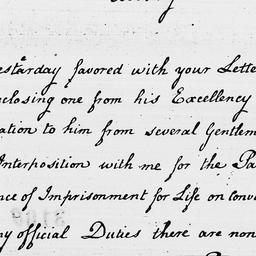 estarday favored with your Lette
closing one from his Excellency
ation to him from several Gentlem
Interposition with me for the Pa
nce of Imprisonment for Life on conv
ny official Duties there are non